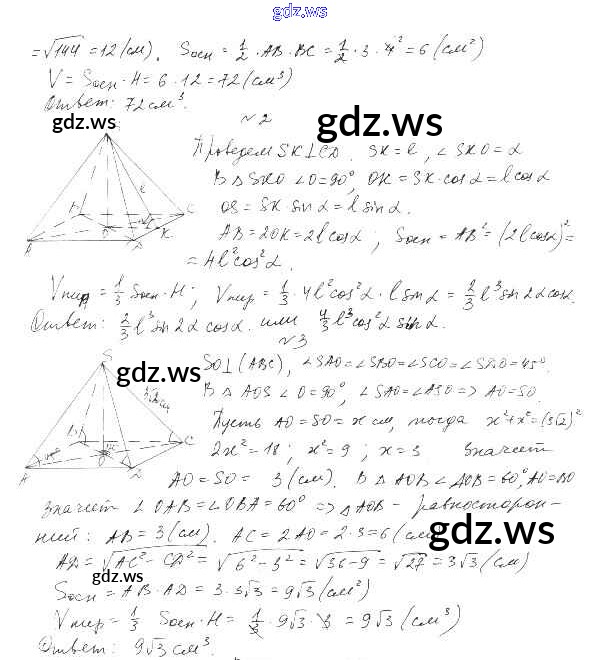 gdz.ws
= √144 = 12 (см). Sосн = 1/2 · AB · BC = 1/2 · 3 · 4 = 6 (см²)
V = Sосн · H = 6 · 12 = 72 (см³)
Ответ: 72 см³.
gdz.ws
gdz.ws
№2
Проведем SK⊥CD. SK = l, ∠SKO = α
В △SKO ∠O = 90°, OK = SK · cos α = l cos α
OS = SK sin α = l sin α.
AB = 2OK = 2l cos α; Sосн = AB² = (2l cos α)² =
= 4l² cos² α.
Vпир = 1/3 Sосн · H; Vпир = 1/3 · 4l² cos² α · l sin α = 2/3 l³ sin 2α cos α.
Ответ: 2/3 l³ sin 2α cos α. или 4/3 l³ cos² α sin α.
№3
gdz.ws
gdz.ws
SO⊥(ABC), ∠SAO = ∠SBO = ∠SCO = ∠SDO = 45°.
В △AOS ∠O = 90°, ∠SAO = ∠ASO => AO = SO.
Пусть AO = SO = x см, тогда x² + x² = (3√2)²
2x² = 18; x² = 9; x = 3 Значит
AO = SO = 3 (см). В △AOB ∠AOB = 60°, AO = BO
значит ∠OAB = ∠OBA = 60° => △AOB – равносторон-
ний: AB = 3 (см). AC = 2AO = 2 · 3 = 6 (см)
gdz.ws
AD = √AC² - CD² = √6² - 3² = √36 - 9 = √27 = 3√3 (см)
gdz.ws
Sосн = AB · AD = 3 · 3√3 = 9√3 (см²)
Vпир = 1/3 Sосн · H = 1/3 · 9√3 · 3 = 9√3 (см³)
Ответ: 9√3 см³.